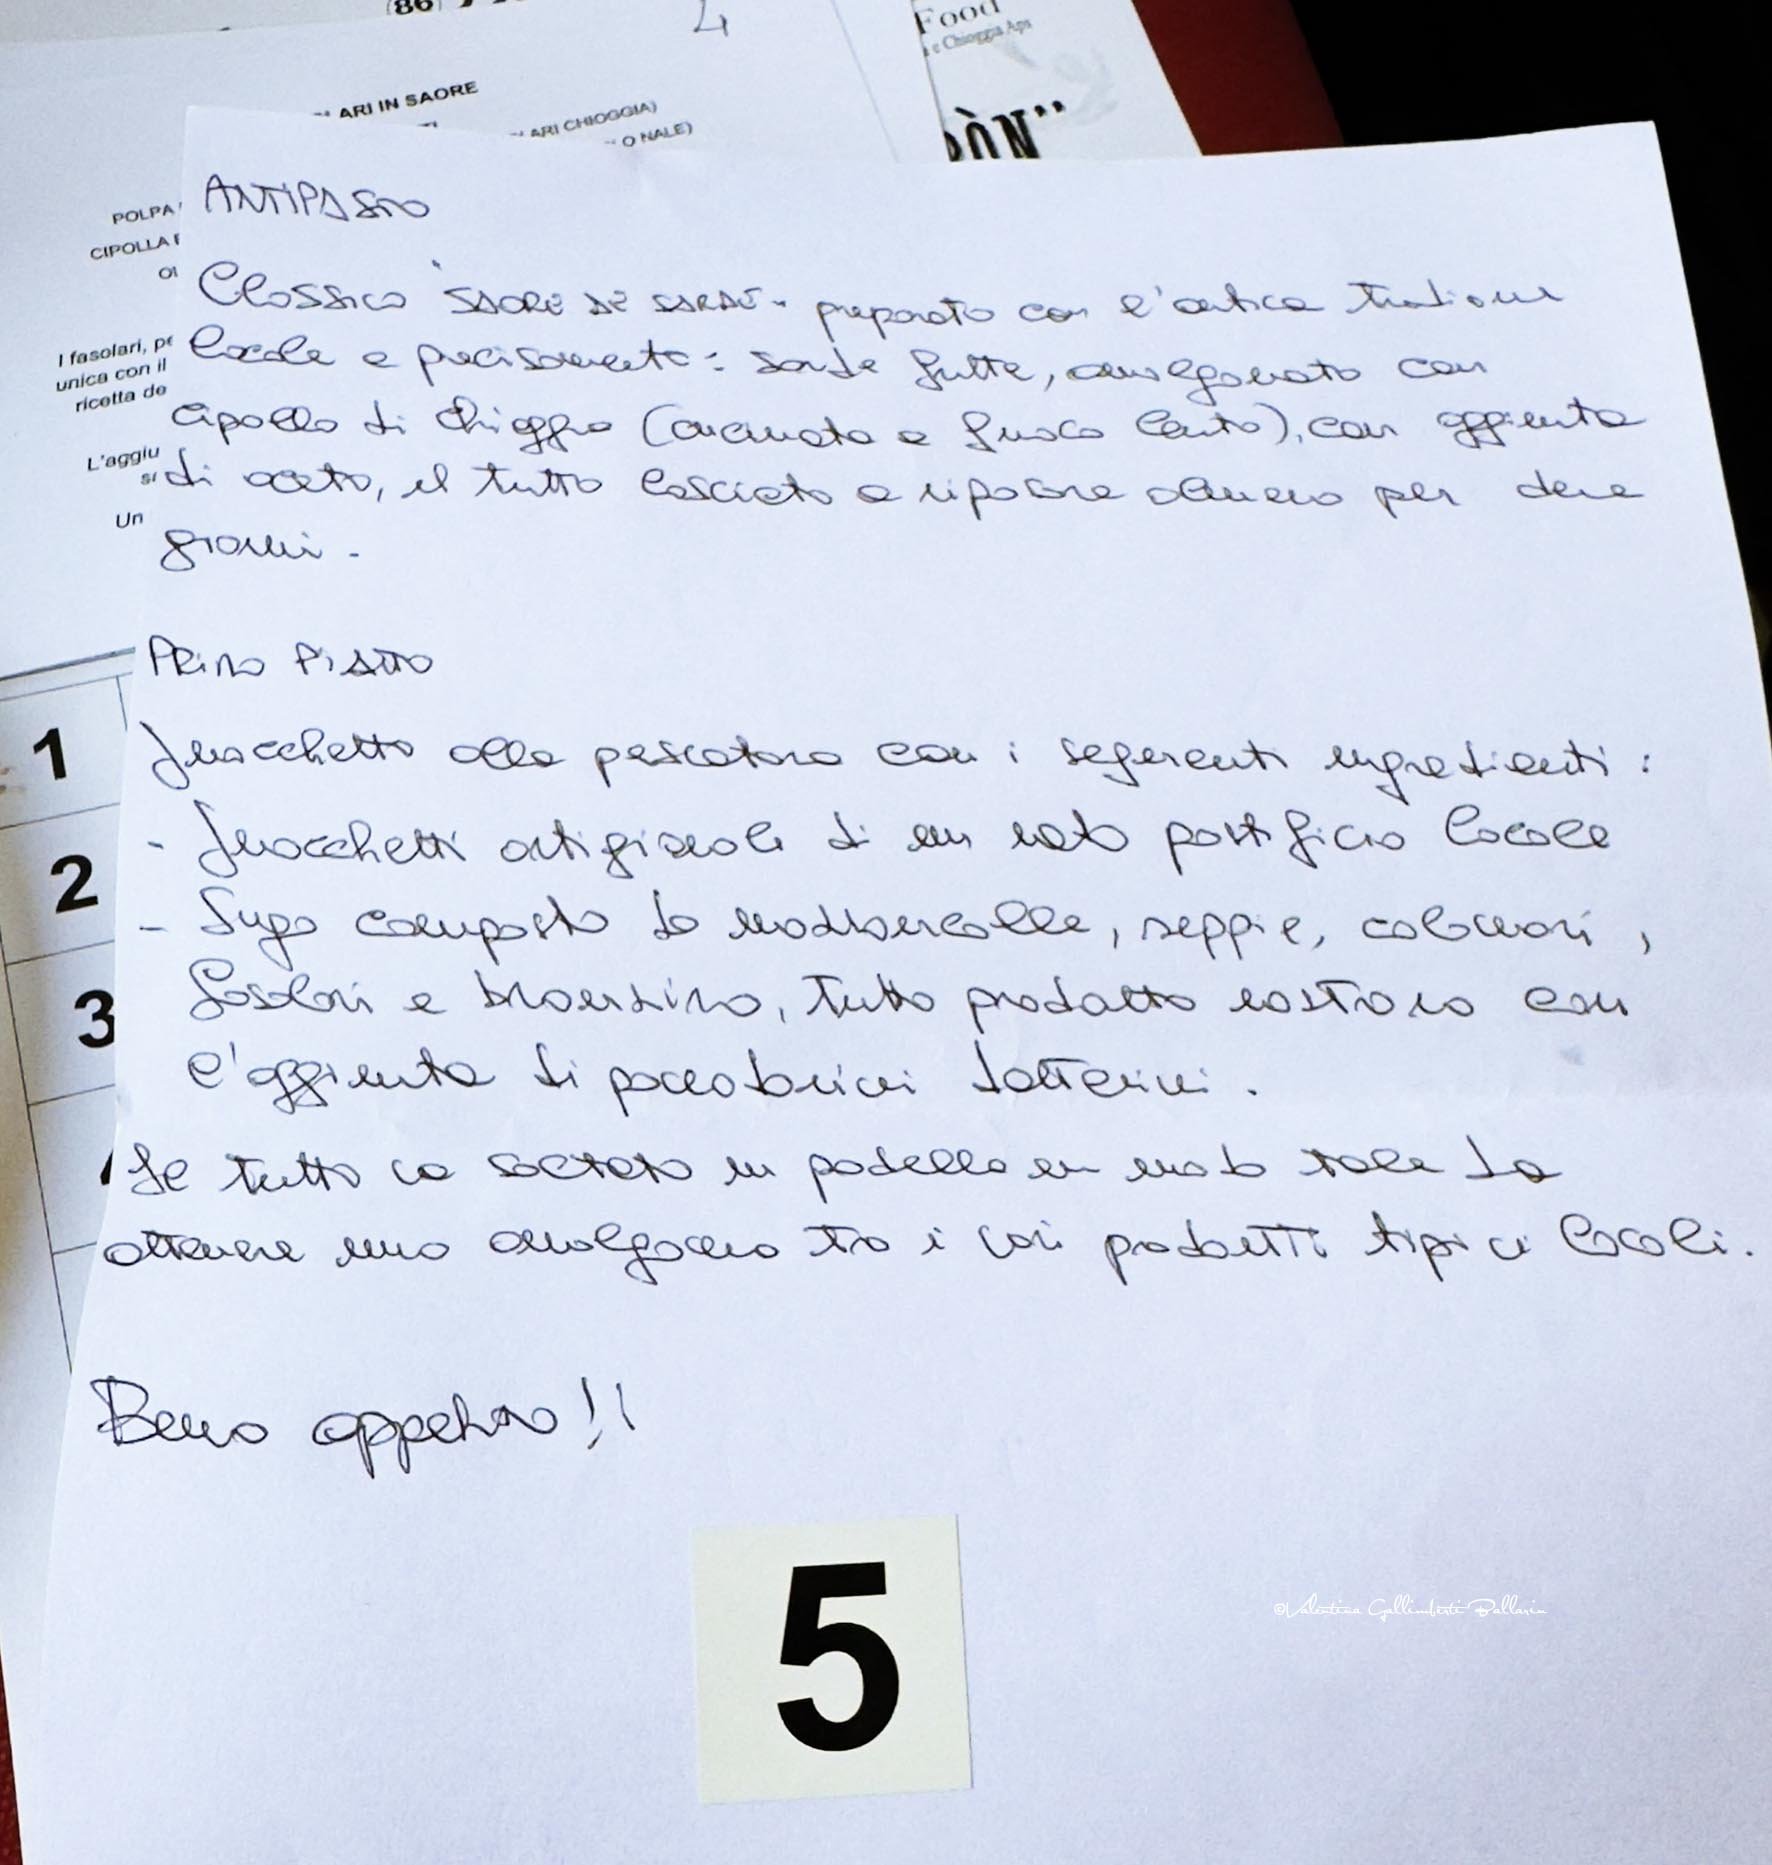 (86)
4
Food
e Chioggia Aps
ÒN"
ARI IN SAORE
ARI CHIOGGIA)
NALE)
POLPA
CIPOLLA
I fasolari, pe
unica con il
ricetta de
L'aggiu
Un
ANTIPASTO
Classico "SAORE DE SARDE" preparato con l'antica tradizione
locale e precisamente: sarde fritte, amalgamato con
cipolla di Chioggia (cucinata a fuoco lento), con aggiunta
di aceto, il tutto lasciato a riposare almeno per dieci
giorni.
PRIMO PIATTO
Gnocchetto alla pescatora con i seguenti ingredienti:
- Gnocchetti artigianali di un noto pastificio locale
- Sugo composto da mazzancolle, seppie, calamari,
fasolari e branzino, tutto prodotto nostrano con
l'aggiunta di pomodorini datterini.
Il tutto va saltato in padella in modo tale da
ottenere una amalgama tra i vari prodotti tipici locali.
Buon appetito!!
1
2
3
5
©Valentina Gallimberti Ballarin